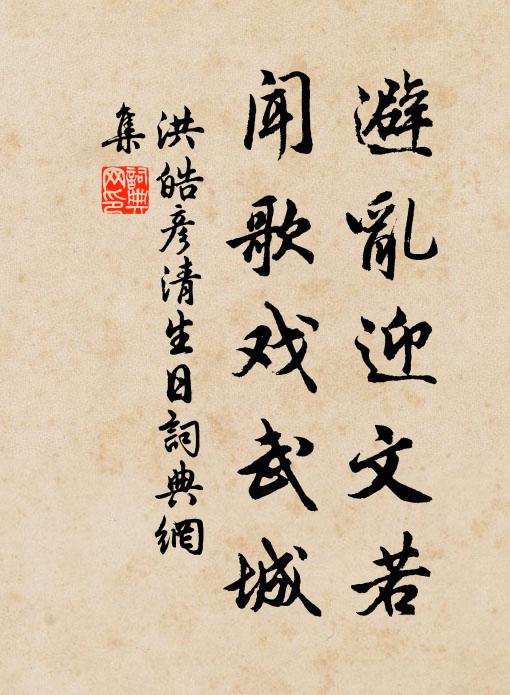 避亂迎文若
闻歌戏武城
洪皓彦清生日詞典網
集
詞典網印